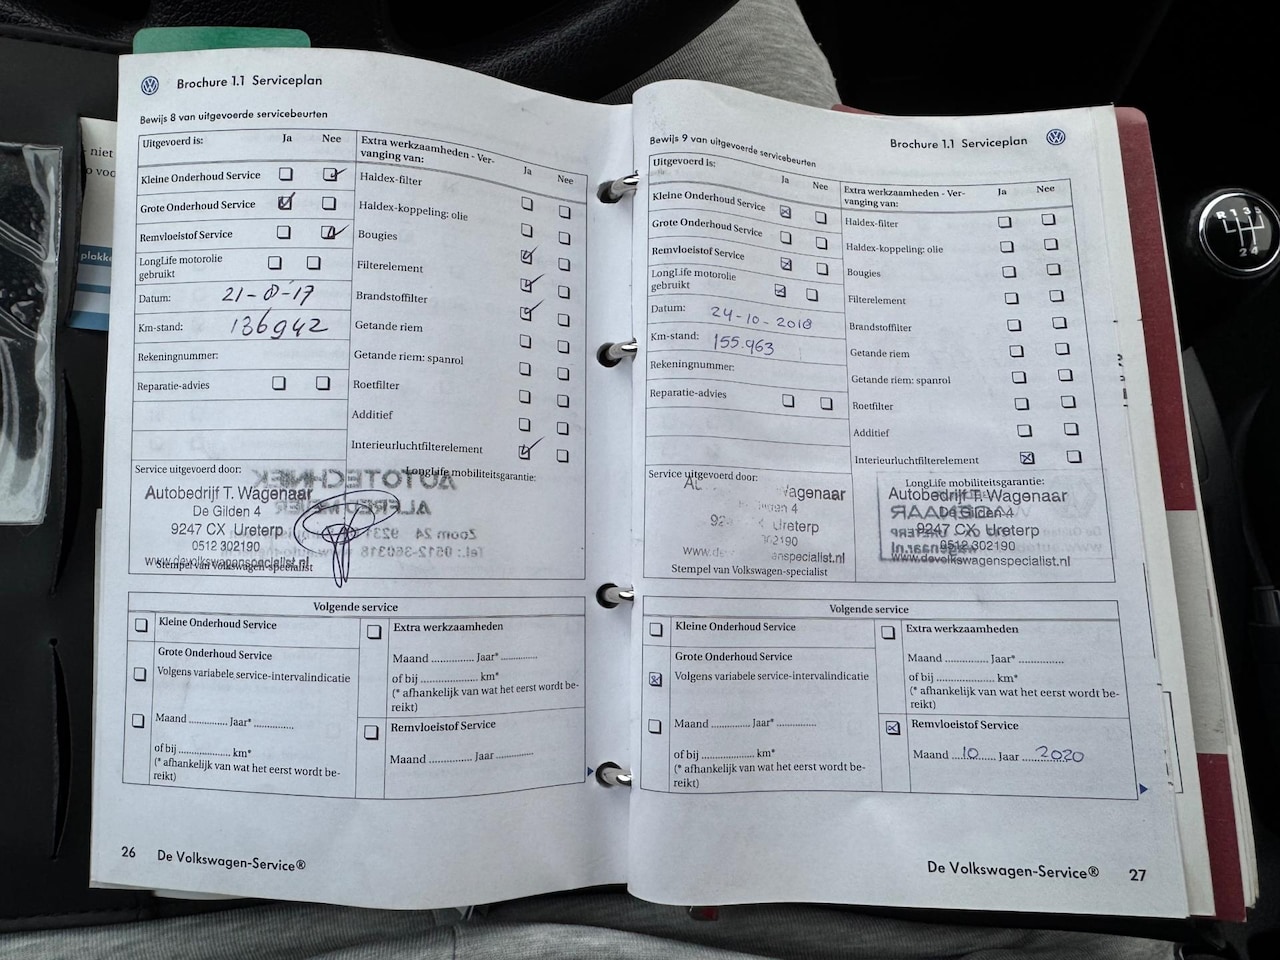 Brochure 1.1 Serviceplan
Bewijs 8 van uitgevoerde servicebeurten
Uitgevoerd is:
Ja
Nee
Kleine Onderhoud Service
Grote Onderhoud Service
Remvloeistof Service
LongLife motorolie
gebruikt
Datum: 21-8-17
Km-stand: 136942
Rekeningnummer:
Reparatie-advies
Extra werkzaamheden - Ver-
vanging van:
Ja
Nee
Haldex-filter
Haldex-koppeling: olie
Bougies
Filterelement
Brandstoffilter
Getande riem
Getande riem: spanrol
Roetfilter
Additief
Interieurluchtfilterelement
Service uitgevoerd door:
LongLife mobiliteitsgarantie:
Autobedrijf T. Wagenaar
De Gilden 4
9247 CX Ureterp
0512 302190
www.devolkswagenspecialist.nl
Stempel van Volkswagen-specialist
AUTOTECHNIEK
ALFRED MEIJER
Zoom 24 9231
Tel.: 0512-360318
Volgende service
Kleine Onderhoud Service
Grote Onderhoud Service
Volgens variabele service-intervalindicatie
Maand .............. Jaar* ..............
of bij .................... km*
(* afhankelijk van wat het eerst wordt be-
reikt)
Extra werkzaamheden
Maand .............. Jaar* .............
of bij .................... km*
(* afhankelijk van wat het eerst wordt be-
reikt)
Remvloeistof Service
Maand .............. Jaar .............
26 De Volkswagen-Service®
Brochure 1.1 Serviceplan
Bewijs 9 van uitgevoerde servicebeurten
Uitgevoerd is:
Ja
Nee
Kleine Onderhoud Service
Grote Onderhoud Service
Remvloeistof Service
LongLife motorolie
gebruikt
Datum: 24-10-2018
Km-stand: 155.963
Rekeningnummer:
Reparatie-advies
Extra werkzaamheden - Ver-
vanging van:
Ja
Nee
Haldex-filter
Haldex-koppeling: olie
Bougies
Filterelement
Brandstoffilter
Getande riem
Getande riem: spanrol
Roetfilter
Additief
Interieurluchtfilterelement
Service uitgevoerd door:
LongLife mobiliteitsgarantie:
Wagenaar
4
Ureterp
Stempel van Volkswagen-specialist
Autobedrijf T. Wagenaar
De Gilden 4
9247 CX Ureterp
0512 302190
www.devolkswagenspecialist.nl
Volgende service
Kleine Onderhoud Service
Grote Onderhoud Service
Volgens variabele service-intervalindicatie
Maand .............. Jaar* ..............
of bij .................... km*
(* afhankelijk van wat het eerst wordt be-
reikt)
Extra werkzaamheden
Maand .............. Jaar* ..............
of bij .................... km*
(* afhankelijk van wat het eerst wordt be-
reikt)
Remvloeistof Service
Maand 10 Jaar 2020
De Volkswagen-Service® 27
R 1 3 5
2 4